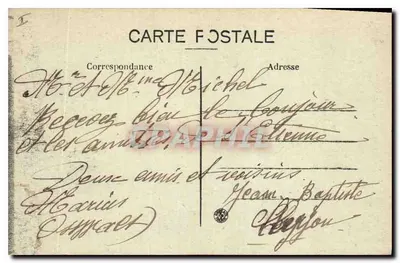 I
CARTE POSTALE
Correspondance
Adresse
Mr et Mme Michel
Recevez bien le bonjour
et les amitiés St Etienne
Deux amis et voisins
Marius
Jean Baptiste